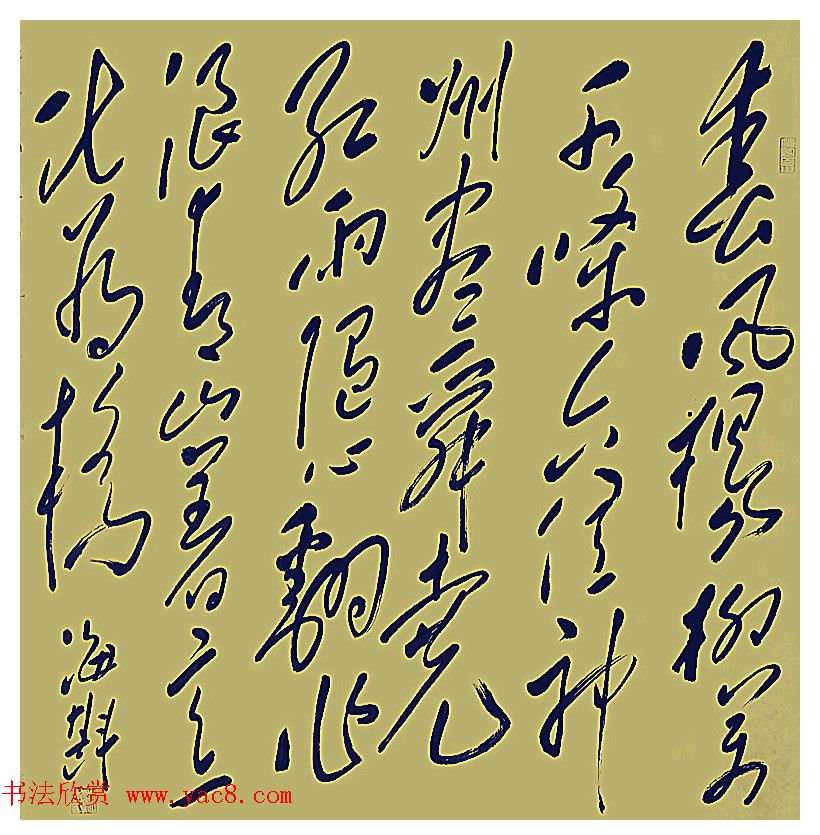 春风杨柳万
千条六亿神
州尽舜尧
红雨随心翻作
浪青山着意
化为桥
海
书法欣赏 www.yac8.com